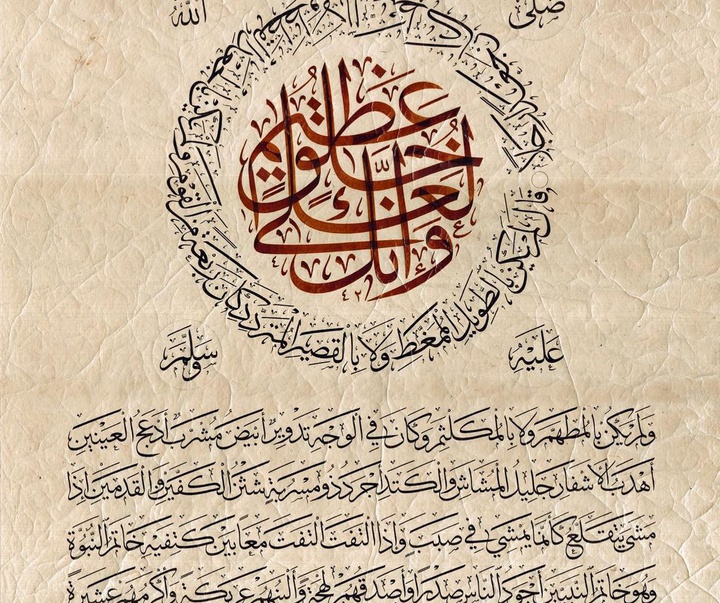 صلى
الله
وإنك لعلى خلق عظيم
قال لم يكن بالطويل الممغط ولا بالقصير المتردد كان ربعة من القوم
عليه
وسلم
ولم يكن بالمطهم ولا بالمكلثم وكان في الوجه تدوير أبيض مشرب أدعج العينين
أهدب الأشفار جليل المشاش والكتد أجرد ذو مسربة شثن الكفين والقدمين إذا
مشى يتقلع كأنما يمشي في صبب وإذا التفت التفت معا بين كتفيه خاتم النبوة
وهو خاتم النبيين أجود الناس صدرا وأصدقهم لهجة وألينهم عريكة وأكرمهم عشيرة